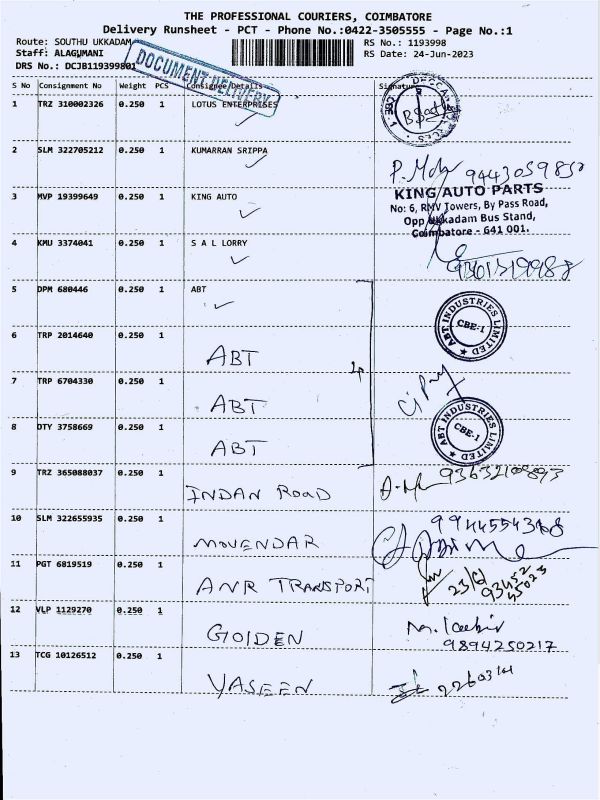 THE PROFESSIONAL COURIERS, COIMBATORE
Delivery Runsheet - PCT - Phone No.:0422-3505555 - Page No.:1
Route: SOUTHU UKKADAM
RS No.: 1193998
Staff: ALAGUMANI
RS Date: 24-Jun-2023
DRS No.: DCJB119399801
DOCUMENT DELIVERY
S No Consignment No Weight PCS Consignee Details Signature
1 TRZ 310002326 0.250 1 LOTUS ENTERPRISES
2 SLM 322705212 0.250 1 KUMARRAN SRIPPA
9443059850
3 MVP 19399649 0.250 1 KING AUTO
KING AUTO PARTS
No: 6, RMV Towers, By Pass Road,
Opp Ukkadam Bus Stand,
Coimbatore - 641 001.
4 KMU 3374041 0.250 1 S A L LORRY
5 DPM 680446 0.250 1 ABT
ABT INDUSTRIES LIMITED
CBE-1
6 TRP 2014640 0.250 1 ABT
7 TRP 6704330 0.250 1 ABT
8 DTY 3758669 0.250 1 ABT
ABT INDUSTRIES LIMITED
CBE-1
9 TRZ 365088037 0.250 1 INDAN ROAD
10 SLM 322655935 0.250 1 MOVENDAR
11 PGT 6819519 0.250 1 ANR TRANSPORT
23/6
93452
45023
12 VLP 1129270 0.250 1 GOLDEN
9894250217
13 TCG 10126512 0.250 1 YASEEN